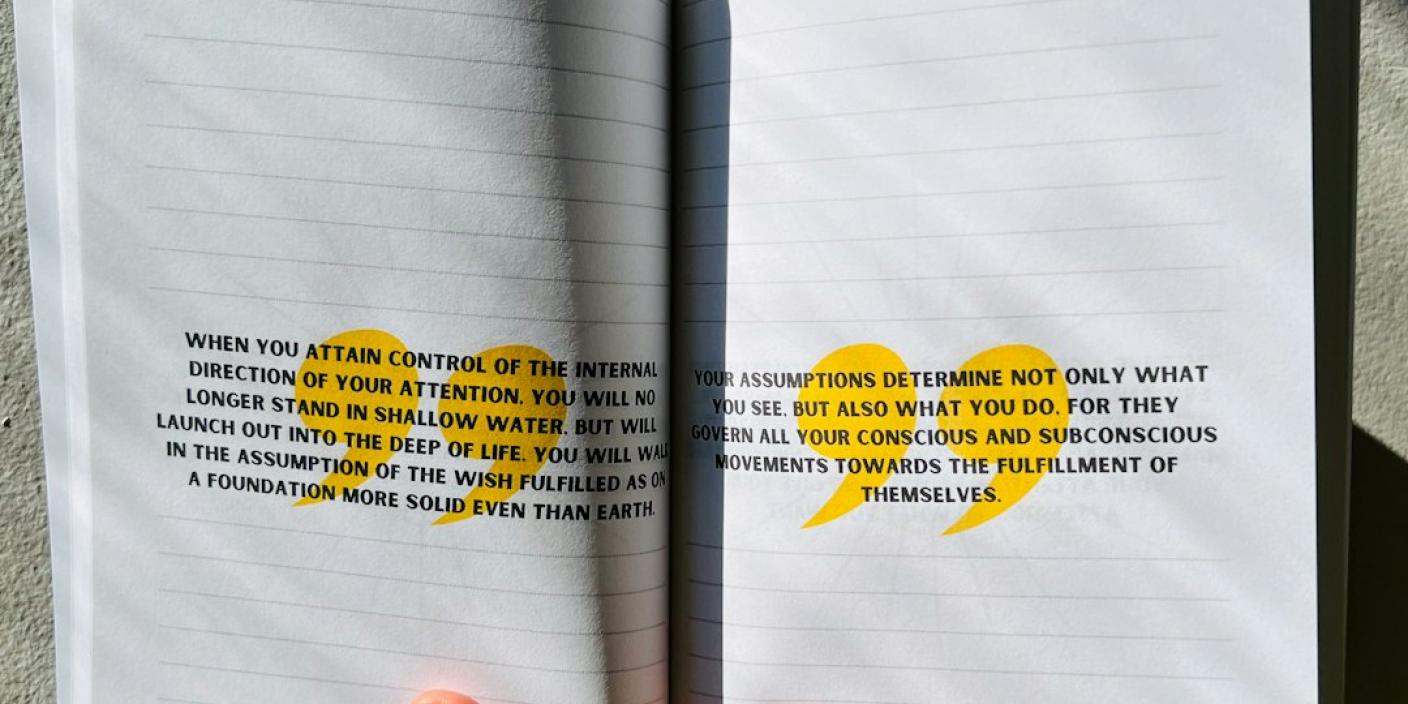 WHEN YOU ATTAIN CONTROL OF THE INTERNAL
DIRECTION OF YOUR ATTENTION, YOU WILL NO
LONGER STAND IN SHALLOW WATER, BUT WILL
LAUNCH OUT INTO THE DEEP OF LIFE. YOU WILL WALK
IN THE ASSUMPTION OF THE WISH FULFILLED AS ON
A FOUNDATION MORE SOLID EVEN THAN EARTH.
YOUR ASSUMPTIONS DETERMINE NOT ONLY WHAT
YOU SEE, BUT ALSO WHAT YOU DO, FOR THEY
GOVERN ALL YOUR CONSCIOUS AND SUBCONSCIOUS
MOVEMENTS TOWARDS THE FULFILLMENT OF
THEMSELVES.